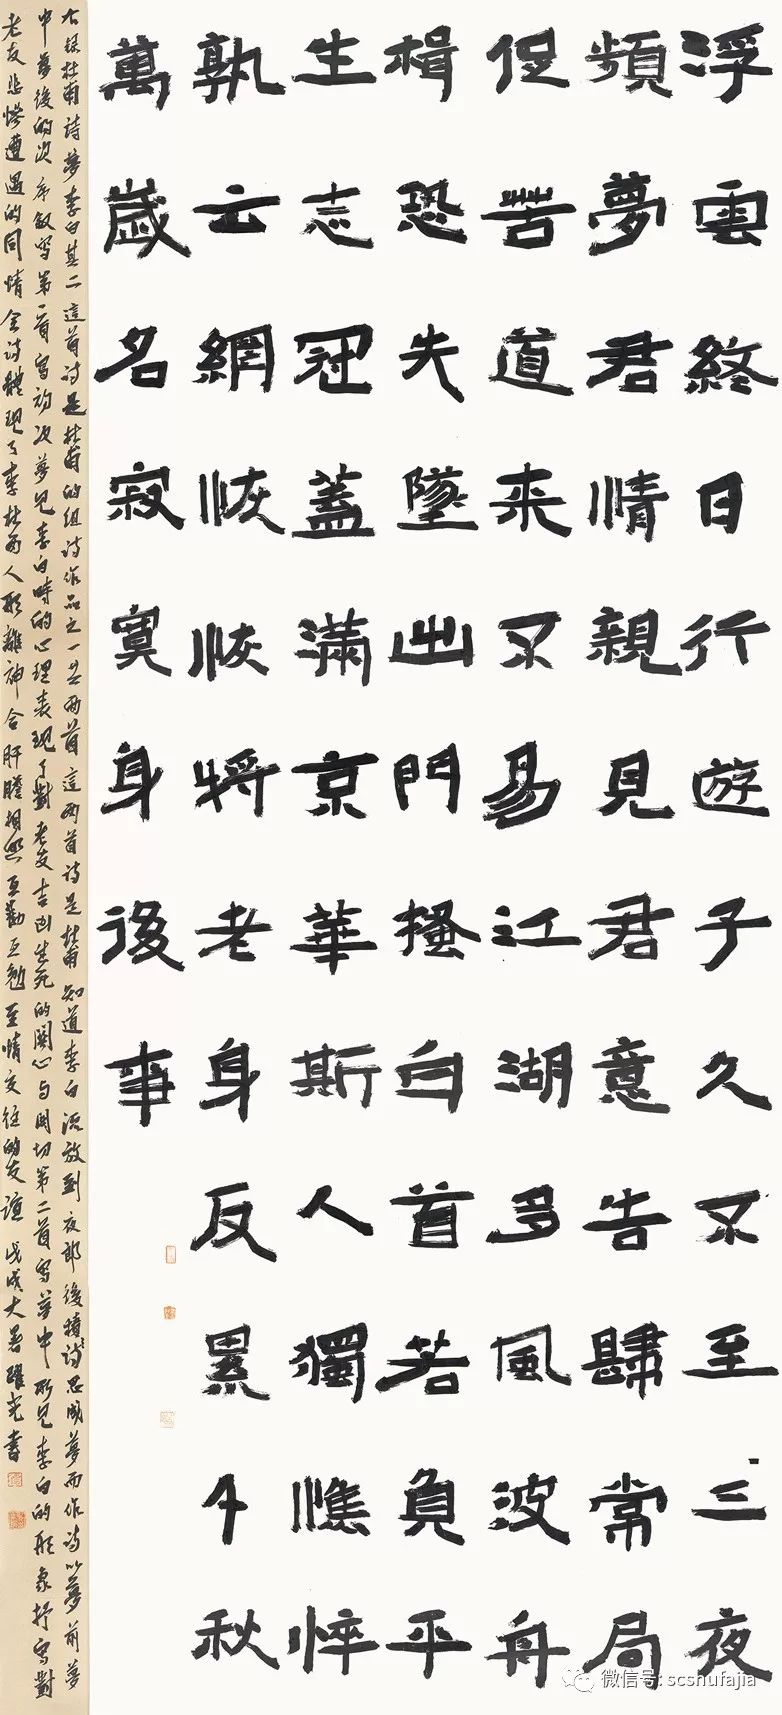 浮雲終日行遊子久不至三夜
頻夢君情親見君意告歸常局
促苦道来不易江湖多風波舟
楫恐失墜出門搔白首若負平
生志冠蓋滿京華斯人獨憔悴
孰云網恢恢將老身反累千秋
萬歲名寂寞身後事
右録杜甫詩夢李白其二這首诗是杜甫的组诗作品之一共两首這两首诗是杜甫知道李白流放到夜郎後積诗思成夢而作诗以夢前夢
中夢後的次序叙写第一首写初次夢見李白時的心理表現了對老友吉凶生死的關心与關切第二首写夢中所見李白的形象抒写對
老友悲惨遭遇的同情全诗體現了李杜两人形離神合肝膽相照互勸互勉至情交往的友谊戊戌大暑躍光書
微信号: scshufajia